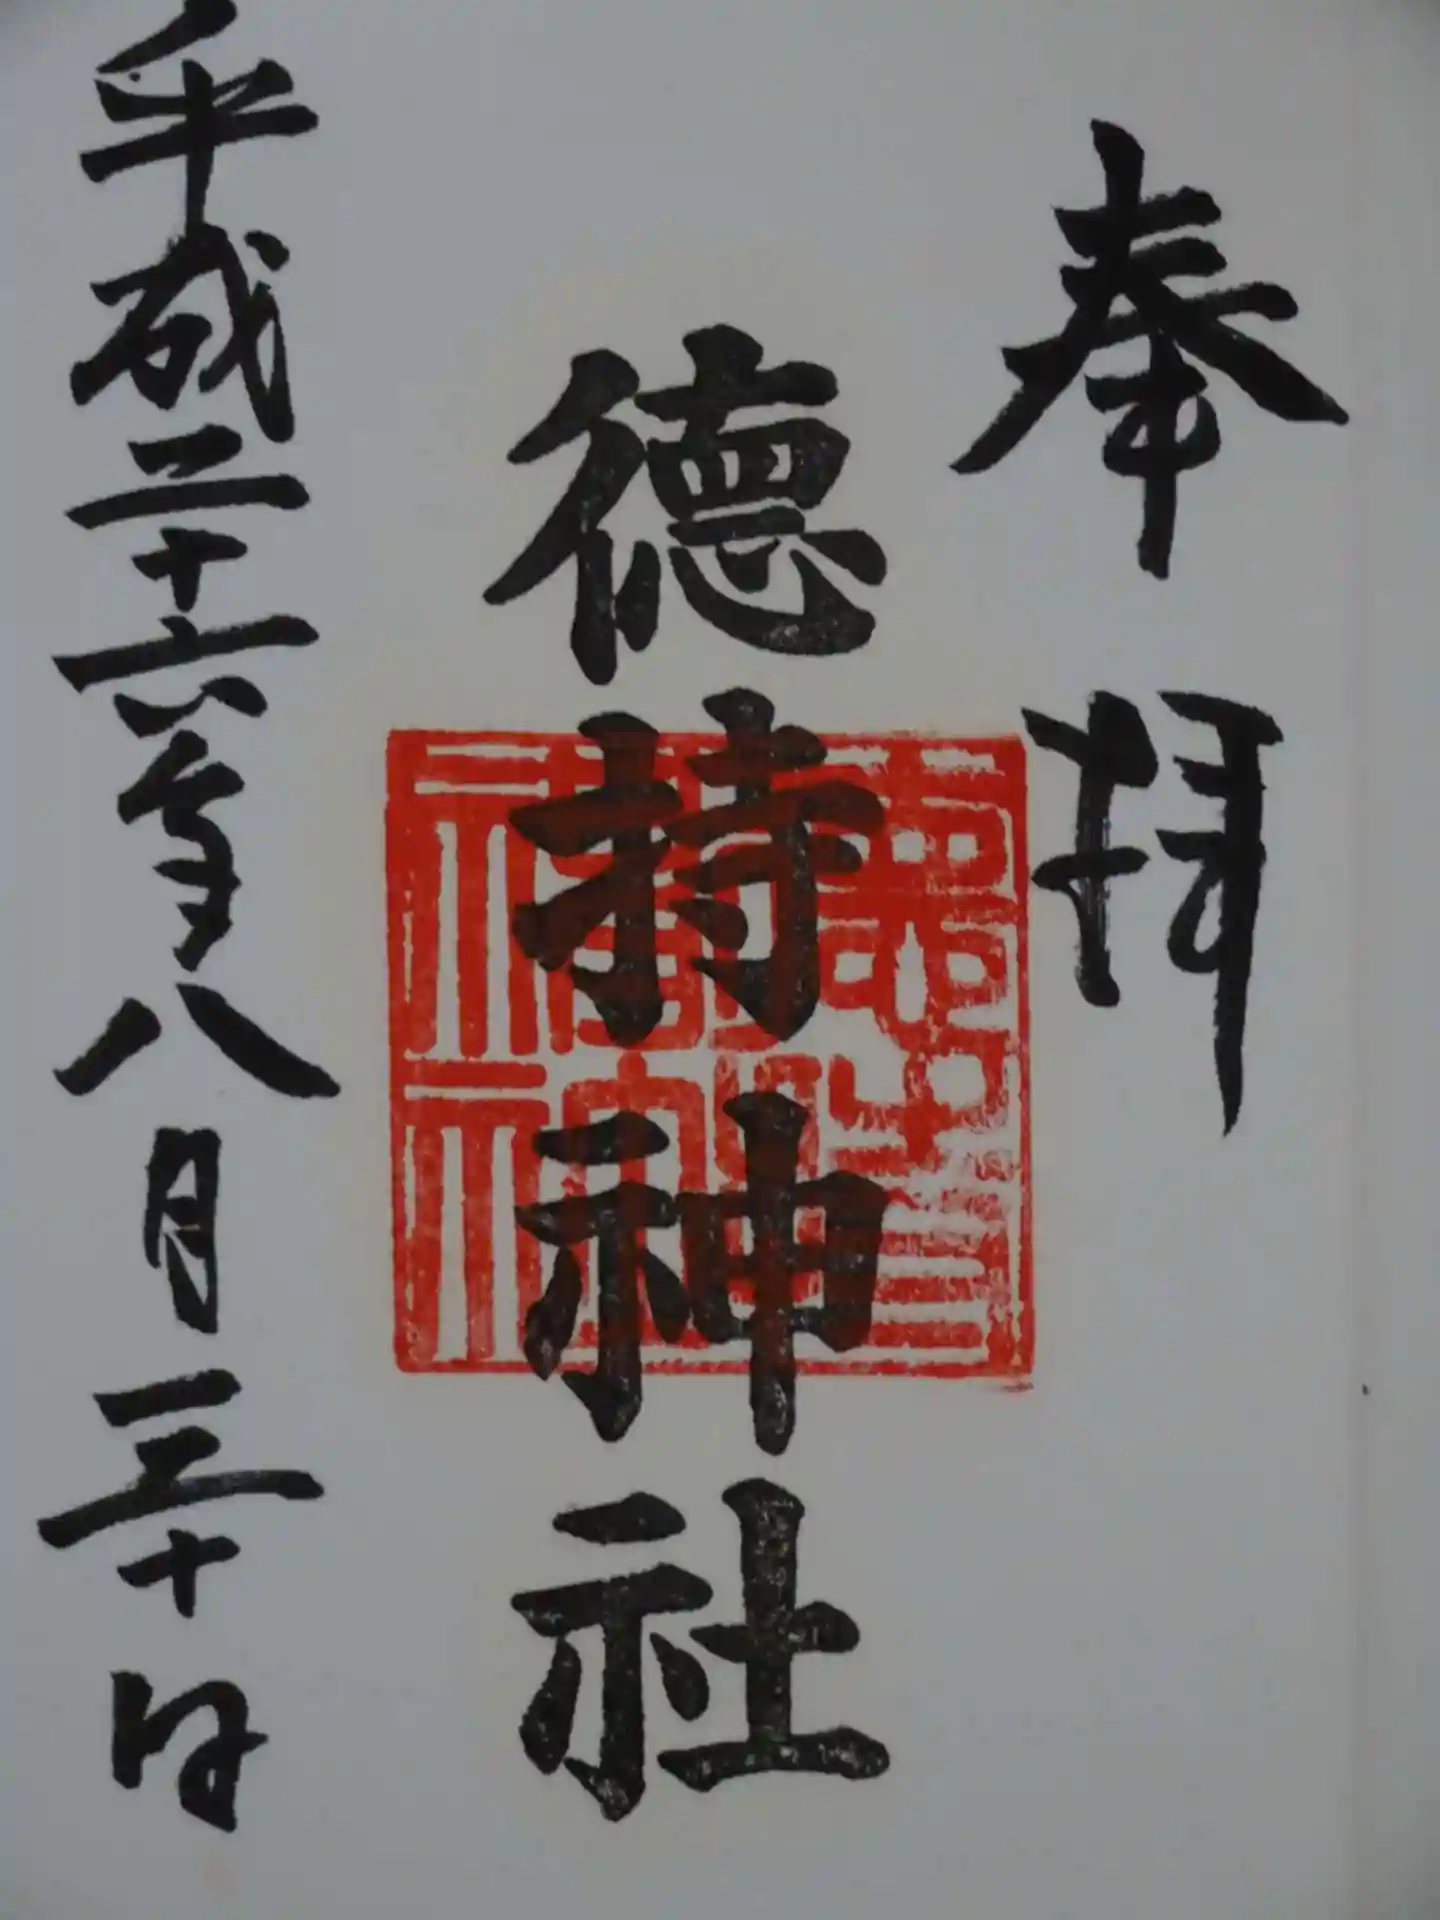 奉拝
徳持神社
平成二十六年八月三十日